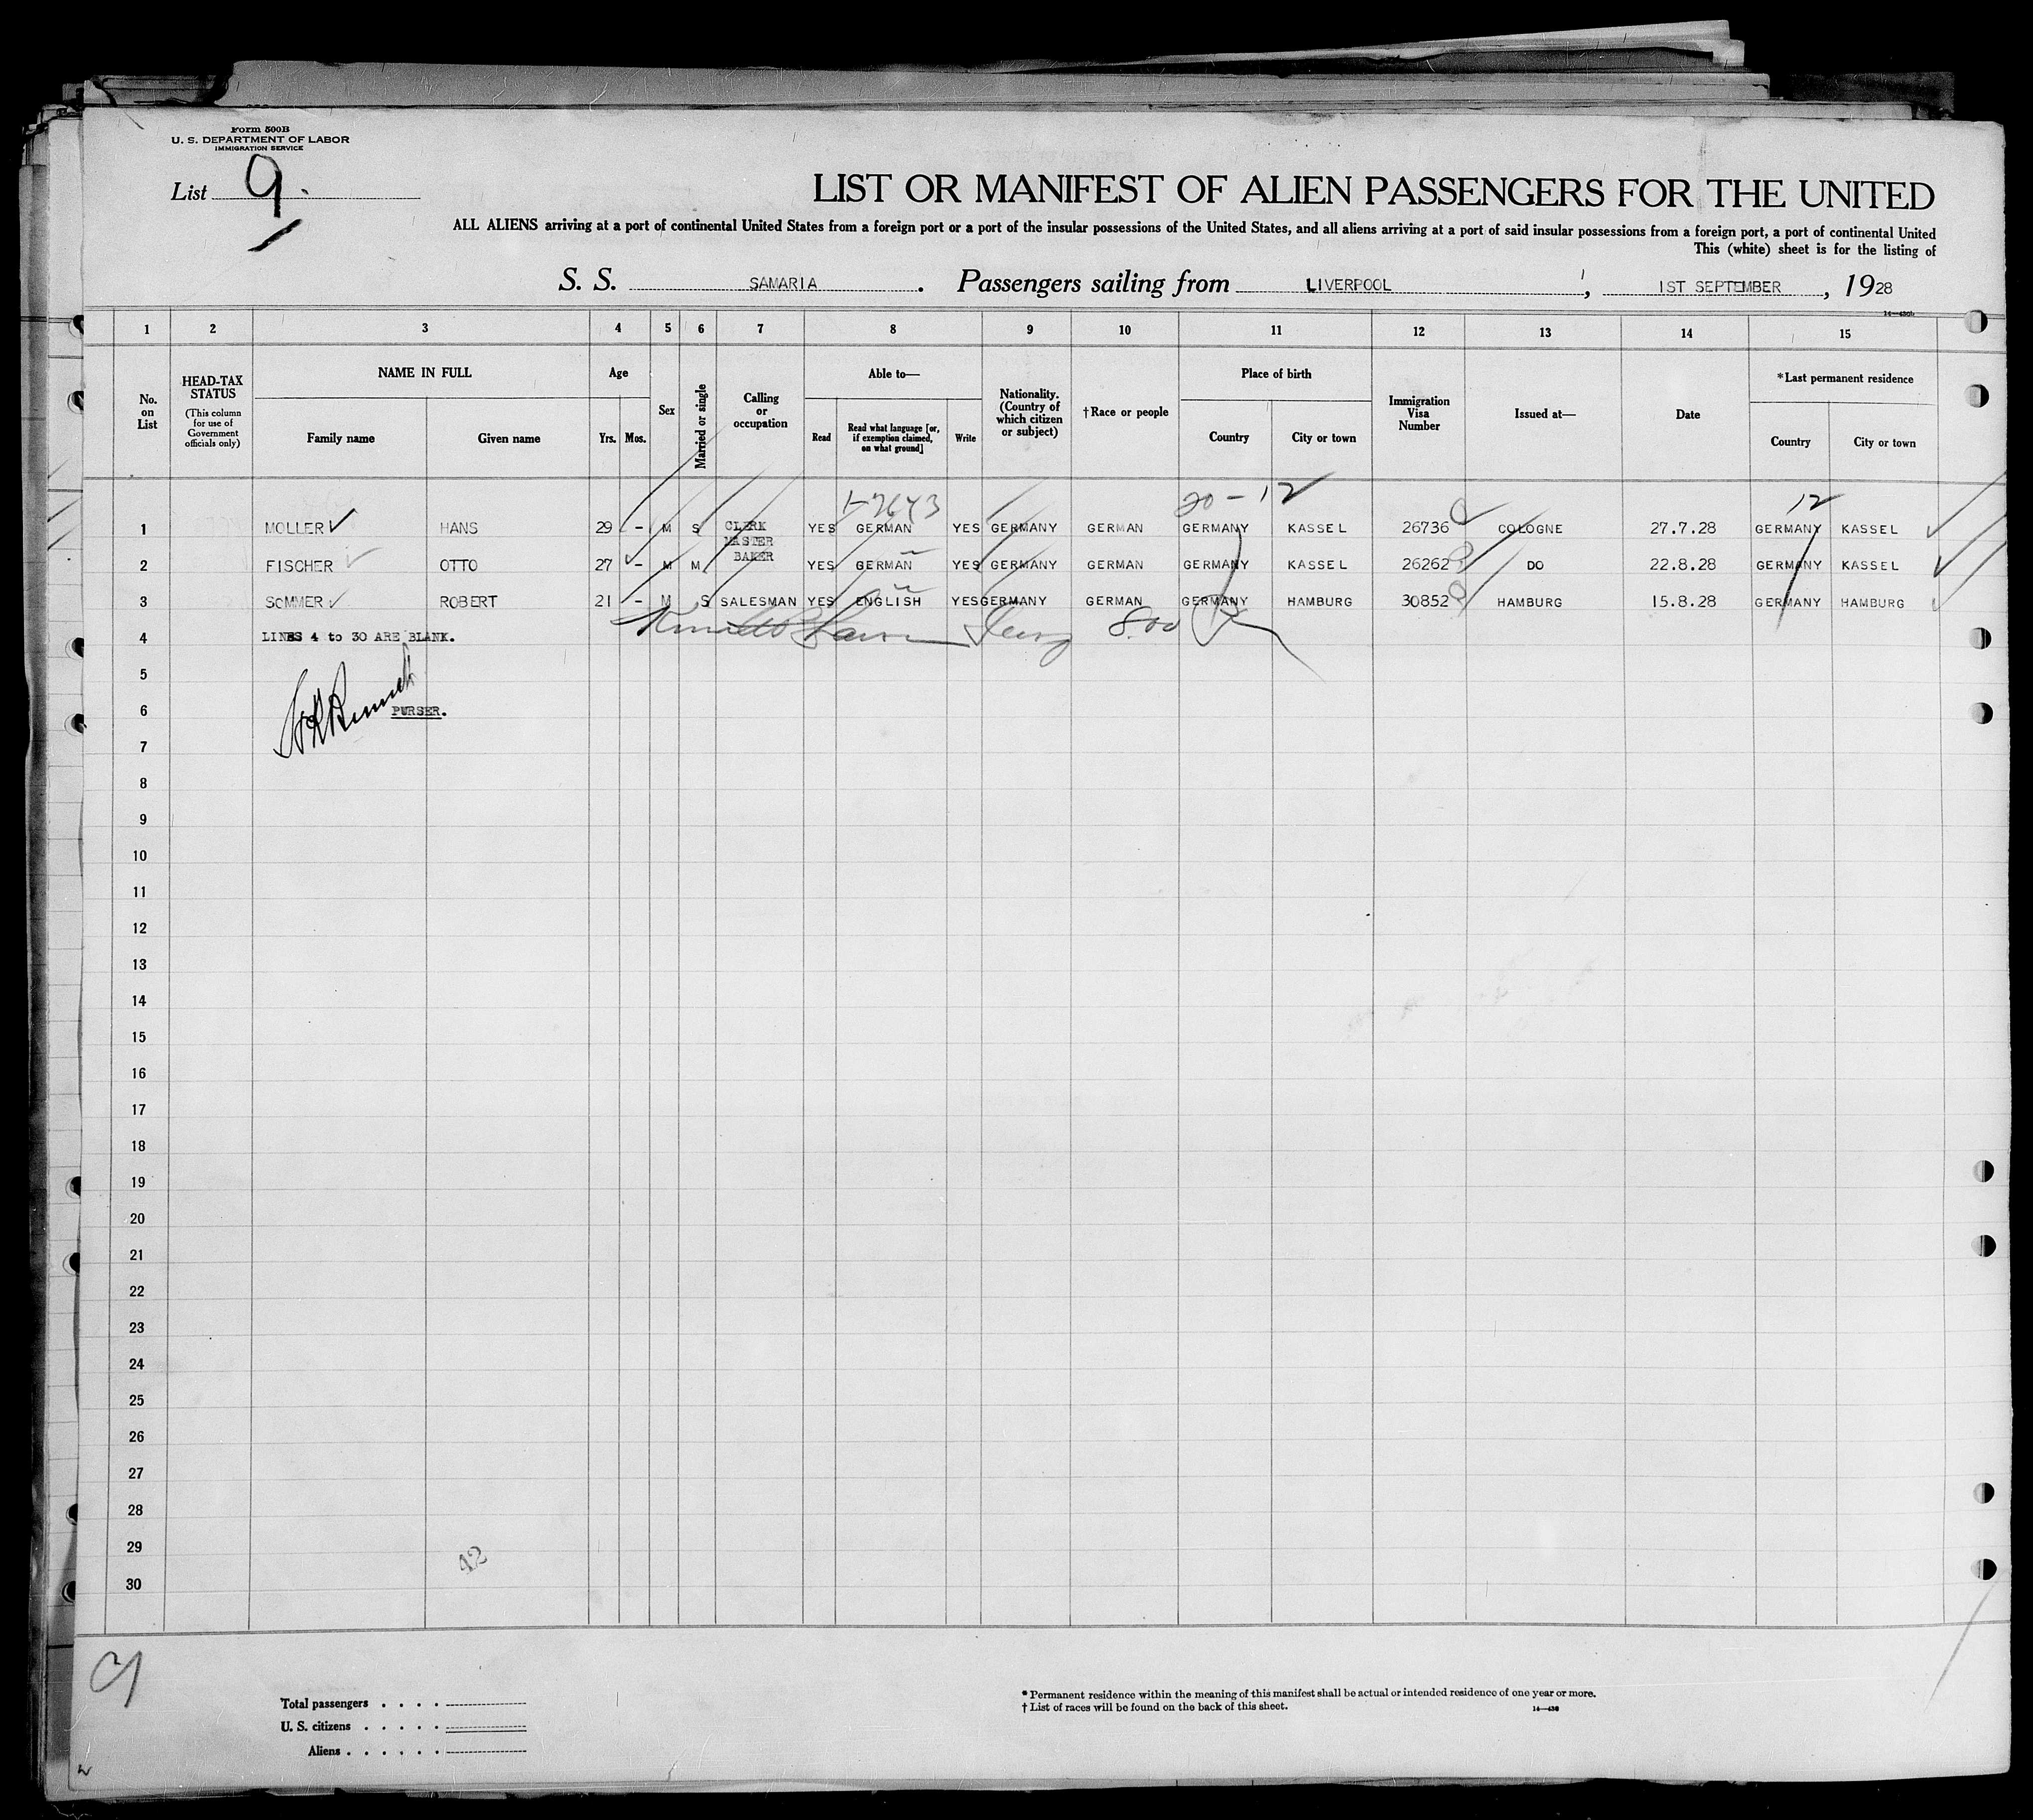 Form 500B
U. S. DEPARTMENT OF LABOR
IMMIGRATION SERVICE
List 9.
LIST OR MANIFEST OF ALIEN PASSENGERS FOR THE UNITED
ALL ALIENS arriving at a port of continental United States from a foreign port or a port of the insular possessions of the United States, and all aliens arriving at a port of said insular possessions from a foreign port, a port of continental United
This (white) sheet is for the listing of
S. S. SAMARIA. Passengers sailing from LIVERPOOL, 1ST SEPTEMBER, 1928
1 2 3 4 5 6 7 8 9 10 11 12 13 14 15
No. on List
HEAD-TAX STATUS
(This column for use of Government officials only)
NAME IN FULL
Family name Given name
Age
Yrs. Mos.
Sex
Married or single
Calling or occupation
Able to—
Read
Read what language [or, if exemption claimed, on what ground]
Write
Nationality. (Country of which citizen or subject)
†Race or people
Place of birth
Country City or town
Immigration Visa Number
Issued at—
Date
*Last permanent residence
Country City or town
20 - 12 12
1 MOLLER HANS 29 - M S CLERK YES GERMAN YES GERMANY GERMAN GERMANY KASSEL 26736 COLOGNE 27.7.28 GERMANY KASSEL
2 FISCHER OTTO 27 - M M MASTER BAKER YES GERMAN YES GERMANY GERMAN GERMANY KASSEL 26262 DO 22.8.28 GERMANY KASSEL
3 SOMMER ROBERT 21 - M S SALESMAN YES ENGLISH YES GERMANY GERMAN GERMANY HAMBURG 30852 HAMBURG 15.8.28 GERMANY HAMBURG
4 LINES 4 to 30 ARE BLANK.
5
6 PURSER.
7
8
9
10
11
12
13
14
15
16
17
18
19
20
21
22
23
24
25
26
27
28
29
42
30
9
Total passengers . . . .
U. S. citizens . . . . .
Aliens . . . . . .
* Permanent residence within the meaning of this manifest shall be actual or intended residence of one year or more.
† List of races will be found on the back of this sheet.